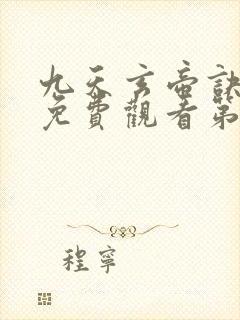 九天玄帝訣
免費觀看第
程寧